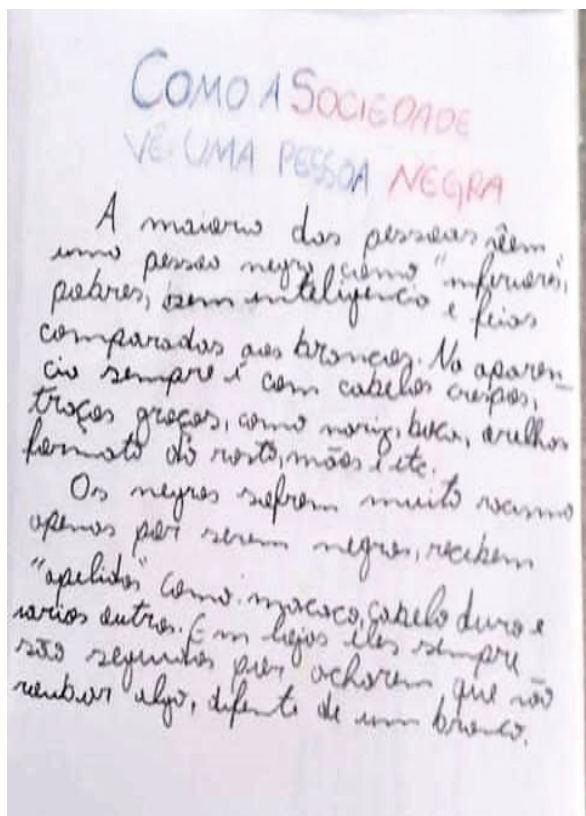 COMO A SOCIEDADE
VÊ UMA PESSOA NEGRA
A maioria das pessoas vêem
uma pessoa negra como "inferiores",
pobres, sem inteligencia e feios
comparadas aos brancos. Na aparen-
cia sempre é com cabelos crespos,
traços graços, como nariz, boca, orelhas
formato do rosto, mãos e etc.
Os negros sofrem muito racismo
apenas por serem negros, recebem
"apelidos" como: macaco, cabelo duro e
varios outros. Em lojas eles sempre
são seguidos por acharem que vão
roubar algo, difente de um branco.